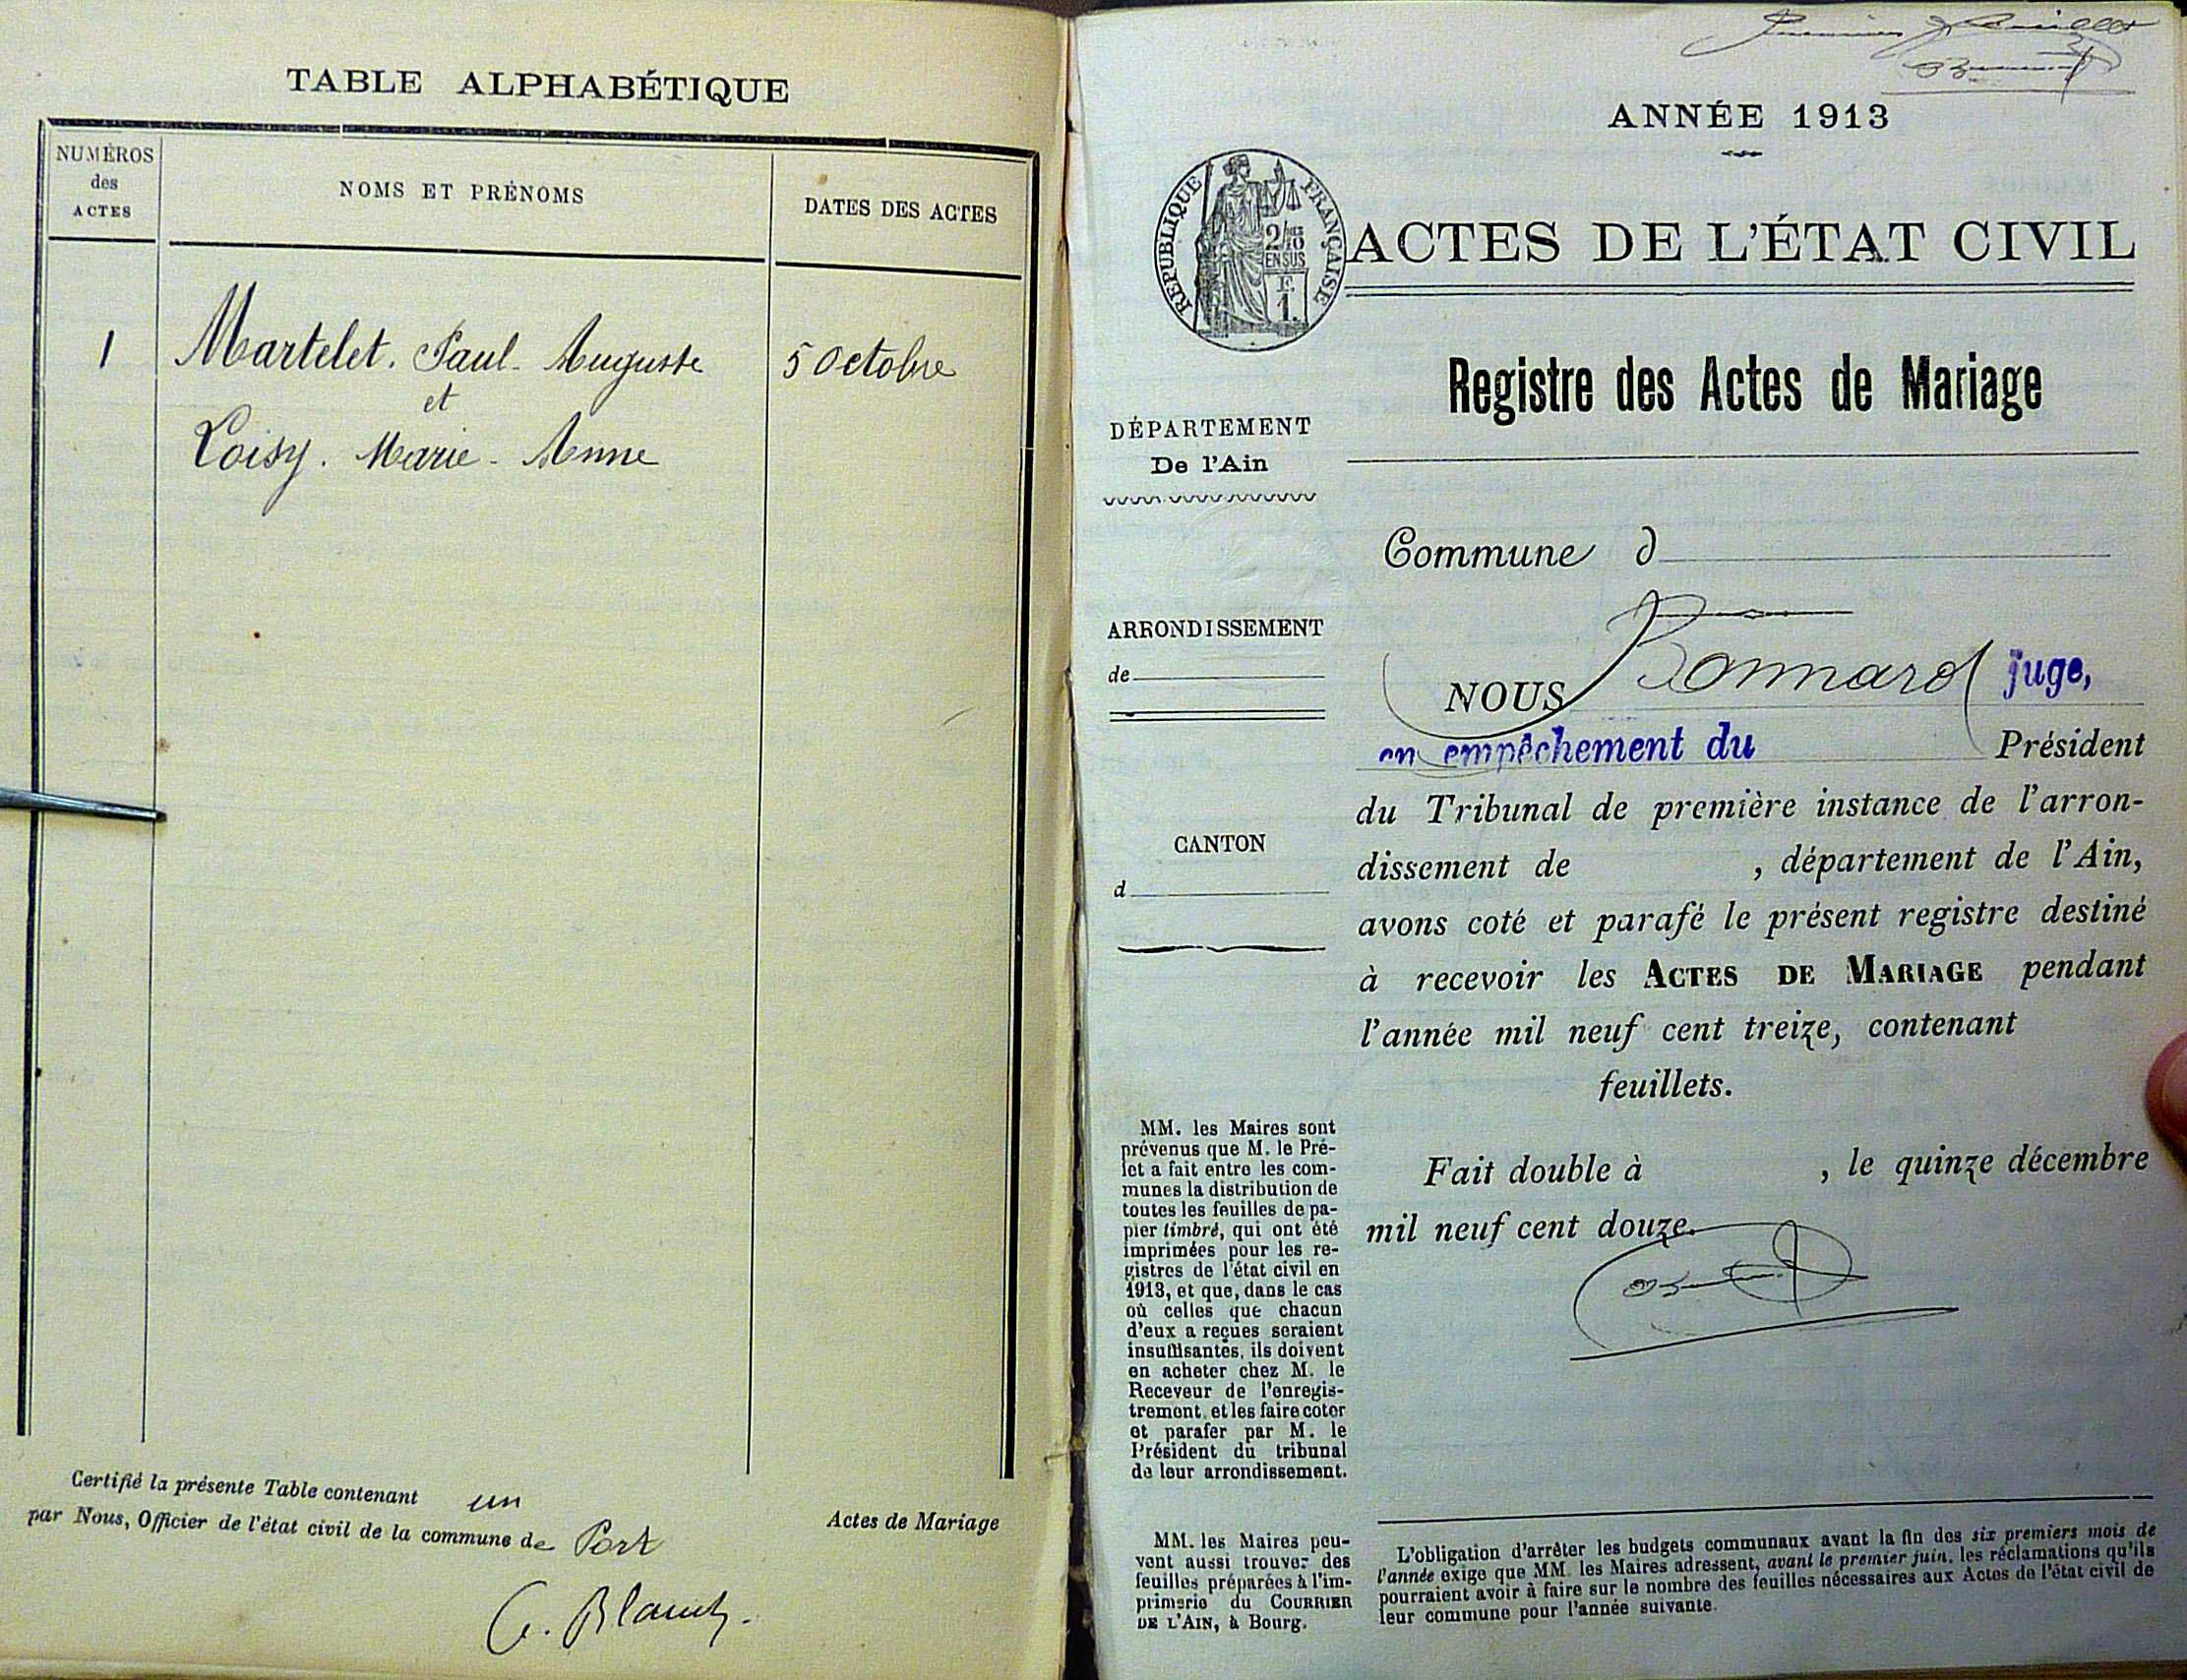 TABLE ALPHABÉTIQUE
NUMÉROS
des
ACTES
NOMS ET PRÉNOMS
DATES DES ACTES
1
Martelet. Paul-Auguste
5 Octobre
et
Loisy. Marie-Anne
Certifié la présente Table contenant un
Actes de Mariage
par Nous, Officier de l'état civil de la commune de Port
Premier feuillet
ANNÉE 1913
RÉPUBLIQUE FRANÇAISE
ACTES DE L'ÉTAT CIVIL
Registre des Actes de Mariage
DÉPARTEMENT
De l'Ain
Commune d
ARRONDISSEMENT
de
NOUS Bonnard juge,
en empêchement du Président
du Tribunal de première instance de l'arron-
dissement de , département de l'Ain,
avons coté et parafé le présent registre destiné
à recevoir les ACTES DE MARIAGE pendant
l'année mil neuf cent treize, contenant
feuillets.
CANTON
d
Fait double à , le quinze décembre
mil neuf cent douze.
MM. les Maires sont
prévenus que M. le Pré-
fet a fait entre les com-
munes la distribution de
toutes les feuilles de pa-
pier timbré, qui ont été
imprimées pour les re-
gistres de l'état civil en
1913, et que, dans le cas
où celles que chacun
d'eux a reçues seraient
insuffisantes, ils doivent
en acheter chez M. le
Receveur de l'enregis-
trement, et les faire coter
et parafer par M. le
Président du tribunal
de leur arrondissement.
MM. les Maires peu-
vent aussi trouver des
feuilles préparées à l'im-
primerie du COURRIER
DE L'AIN, à Bourg.
L'obligation d'arrêter les budgets communaux avant la fin des six premiers mois de
l'année exige que MM. les Maires adressent, avant le premier juin, les réclamations qu'ils
pourraient avoir à faire sur le nombre des feuilles nécessaires aux Actes de l'état civil de
leur commune pour l'année suivante.